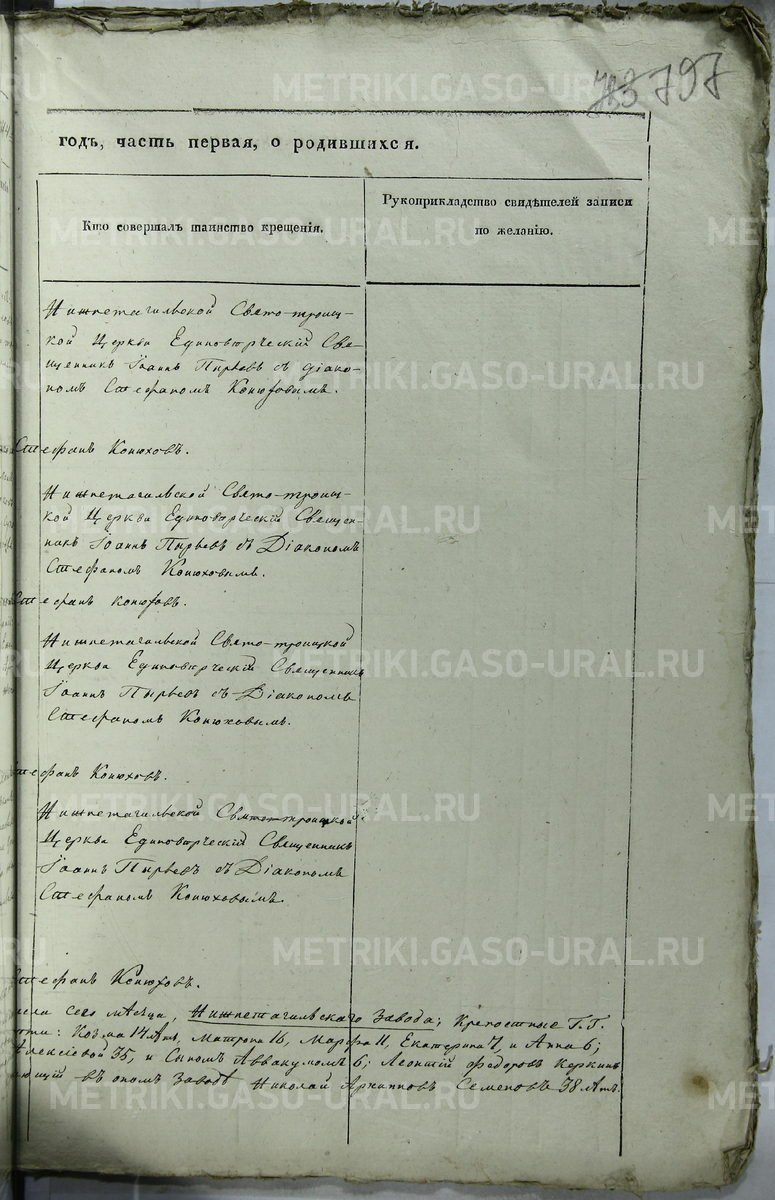 797
годъ, часть первая, о родившихся.
Кто совершалъ таинство крещенія.
Рукоприкладство свидѣтелей записи
по желанію.
Нижнетагильской Свято-троиц-
кой Церкви Единовѣрческій Свя-
щенникъ Іоаннъ Пырьевъ съ діако-
номъ Стефаномъ Конюховымъ.
Стефанъ Конюховъ.
Нижнетагильской Свято-троиц-
кой Церкви Единовѣрческій Священ-
никъ Іоаннъ Пырьевъ съ Діакономъ
Стефаномъ Конюховымъ.
Стефанъ Конюховъ.
Нижнетагильской Свято-троицкой
Церкви Единовѣрческій Священникъ
Іоаннъ Пырьевъ съ Діакономъ
Стефаномъ Конюховымъ.
Стефанъ Конюховъ.
Нижнетагильской Святотроицкой
Церкви Единовѣрческій Священникъ
Іоаннъ Пырьевъ съ Діакономъ
Стефаномъ Конюховымъ.
Стефанъ Конюховъ.
сего мѣсяца, Нижнетагильскаго завода; Крепостные Г.Г.
Козма 14 лѣтъ, Матрона 16, Марфа 11, Екатерина 7, и Анна 6;
Алексіевой 35, и Сыномъ Аввакумомъ 6; Леонтій Федоровъ
въ ономъ заводѣ Николай Архиповъ Семеновъ 38 лѣтъ.
METRIKI.GASO-URAL.RU